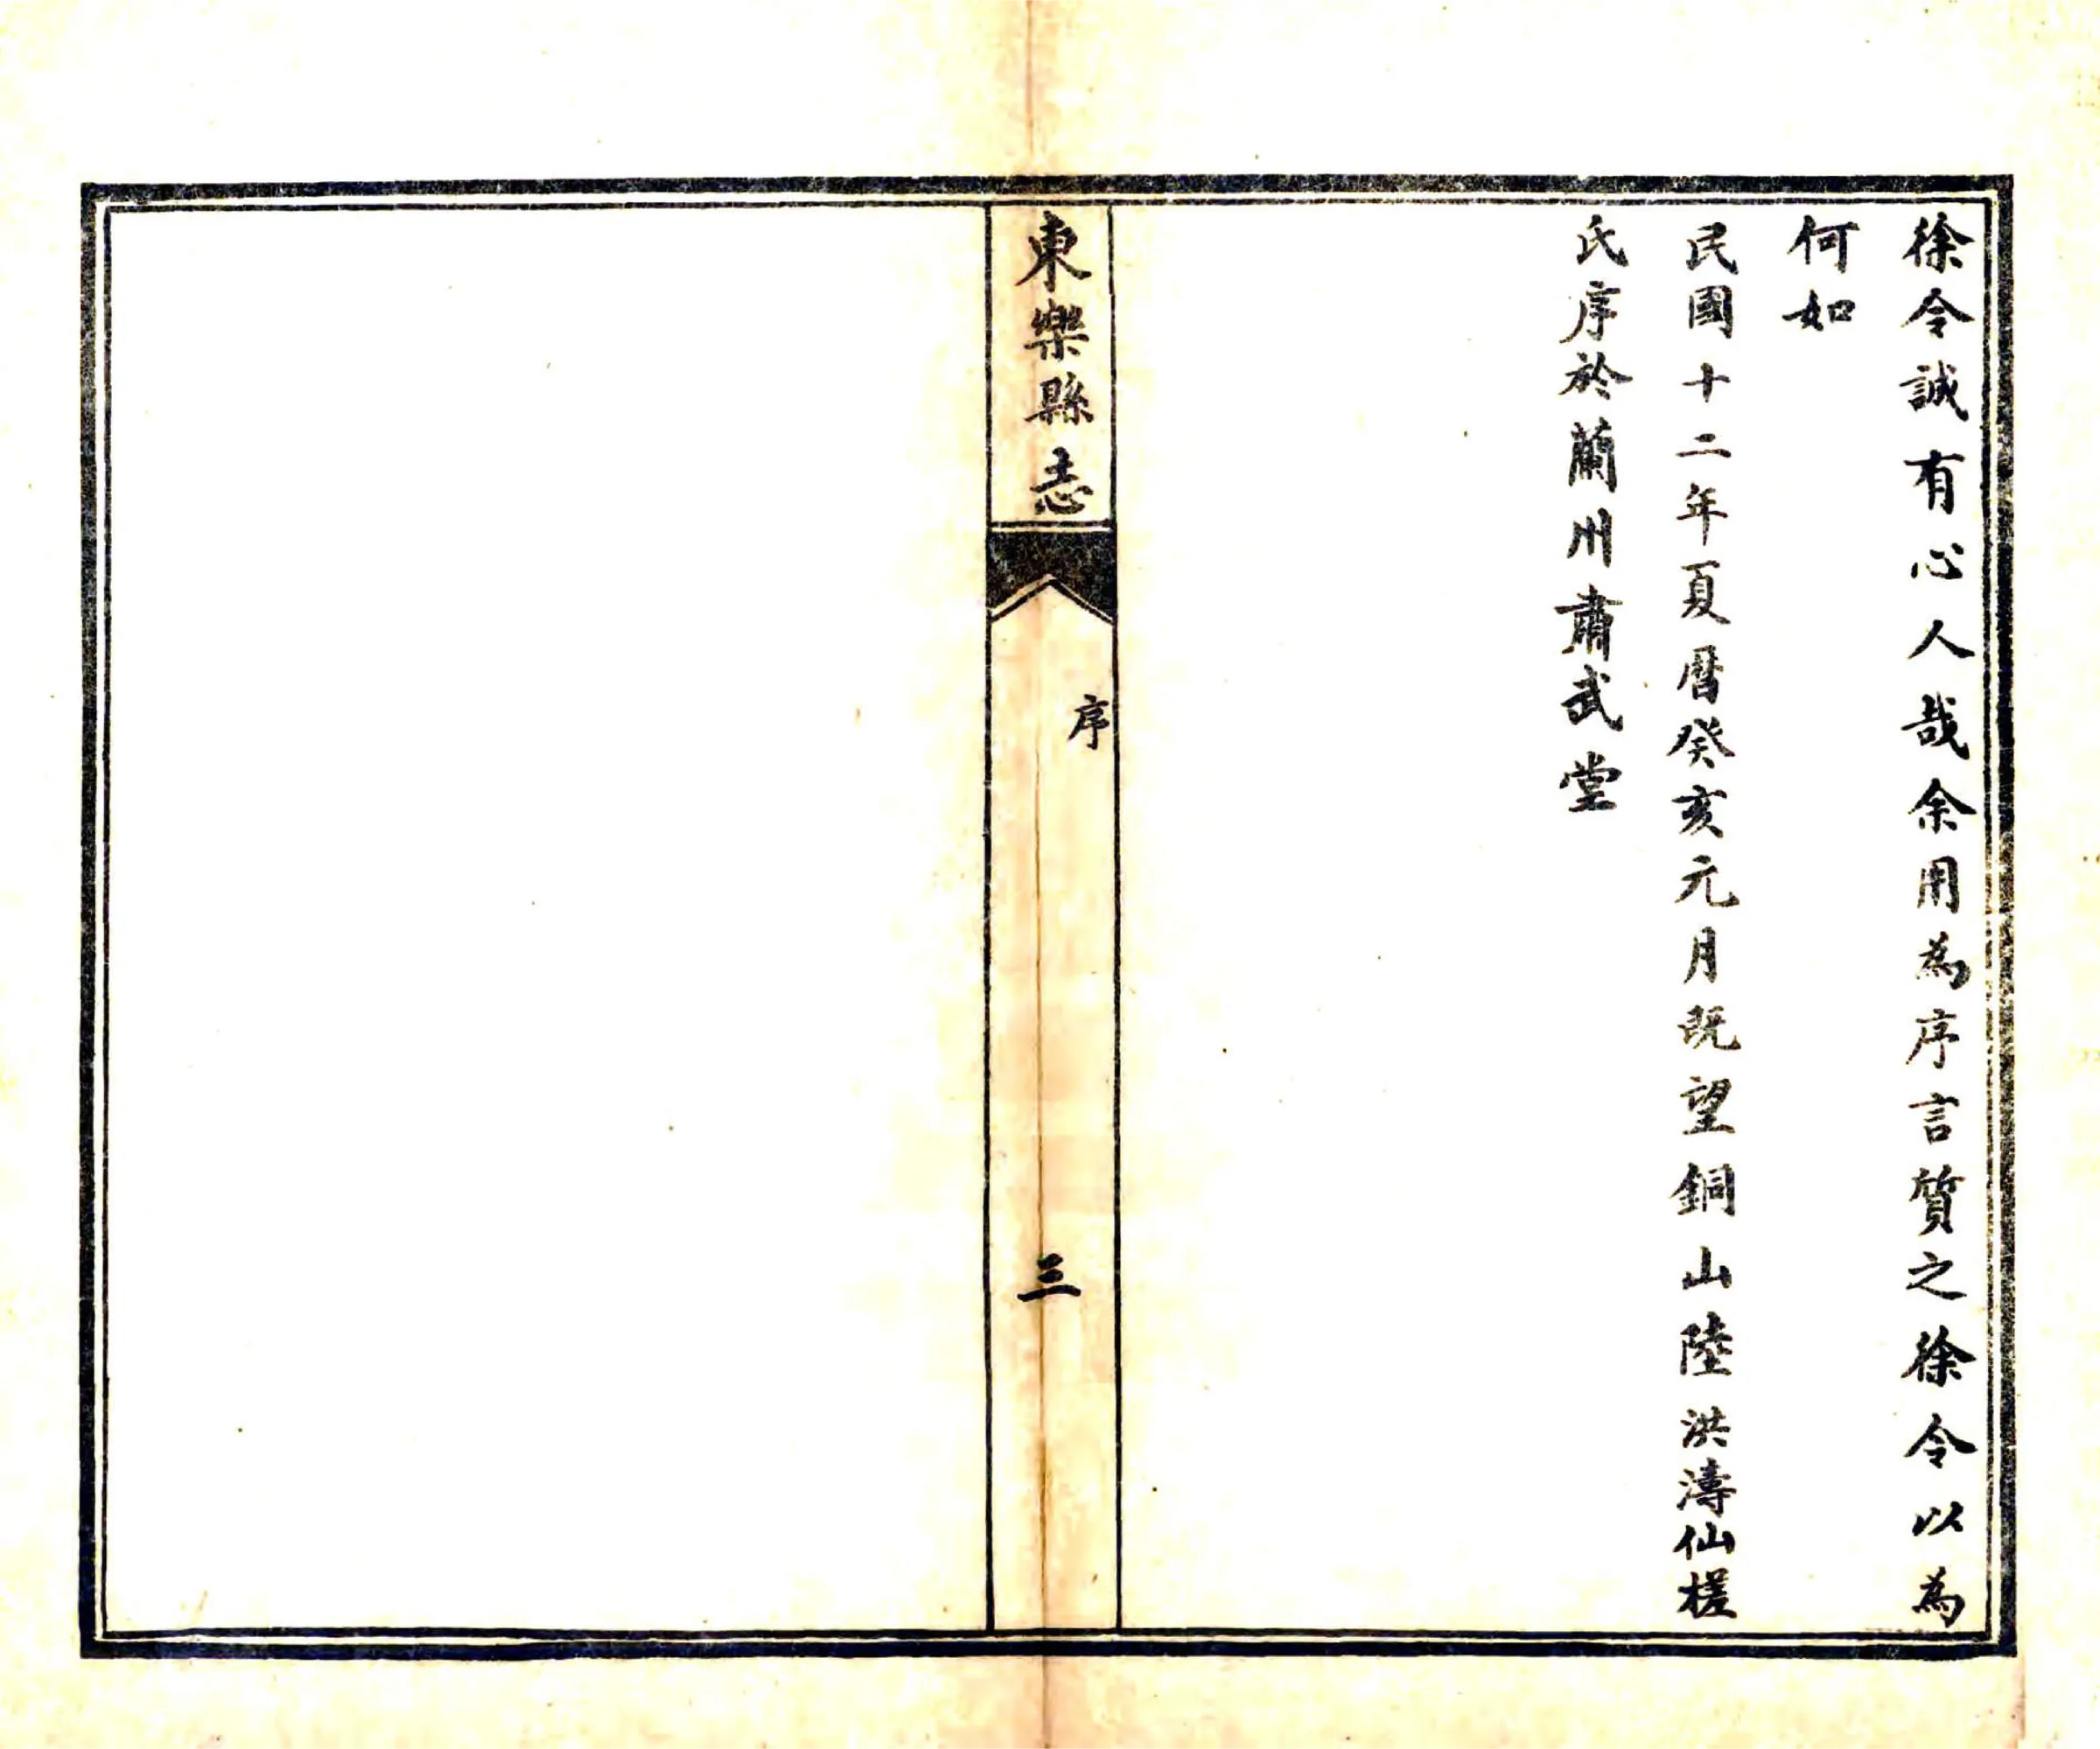 徐令誠有心人哉余用為序言質之徐令以為
何如
民國十二年夏曆癸亥元月既望銅山陸洪濤仙槎
氏序於蘭州肅武堂
東樂縣志
序
三